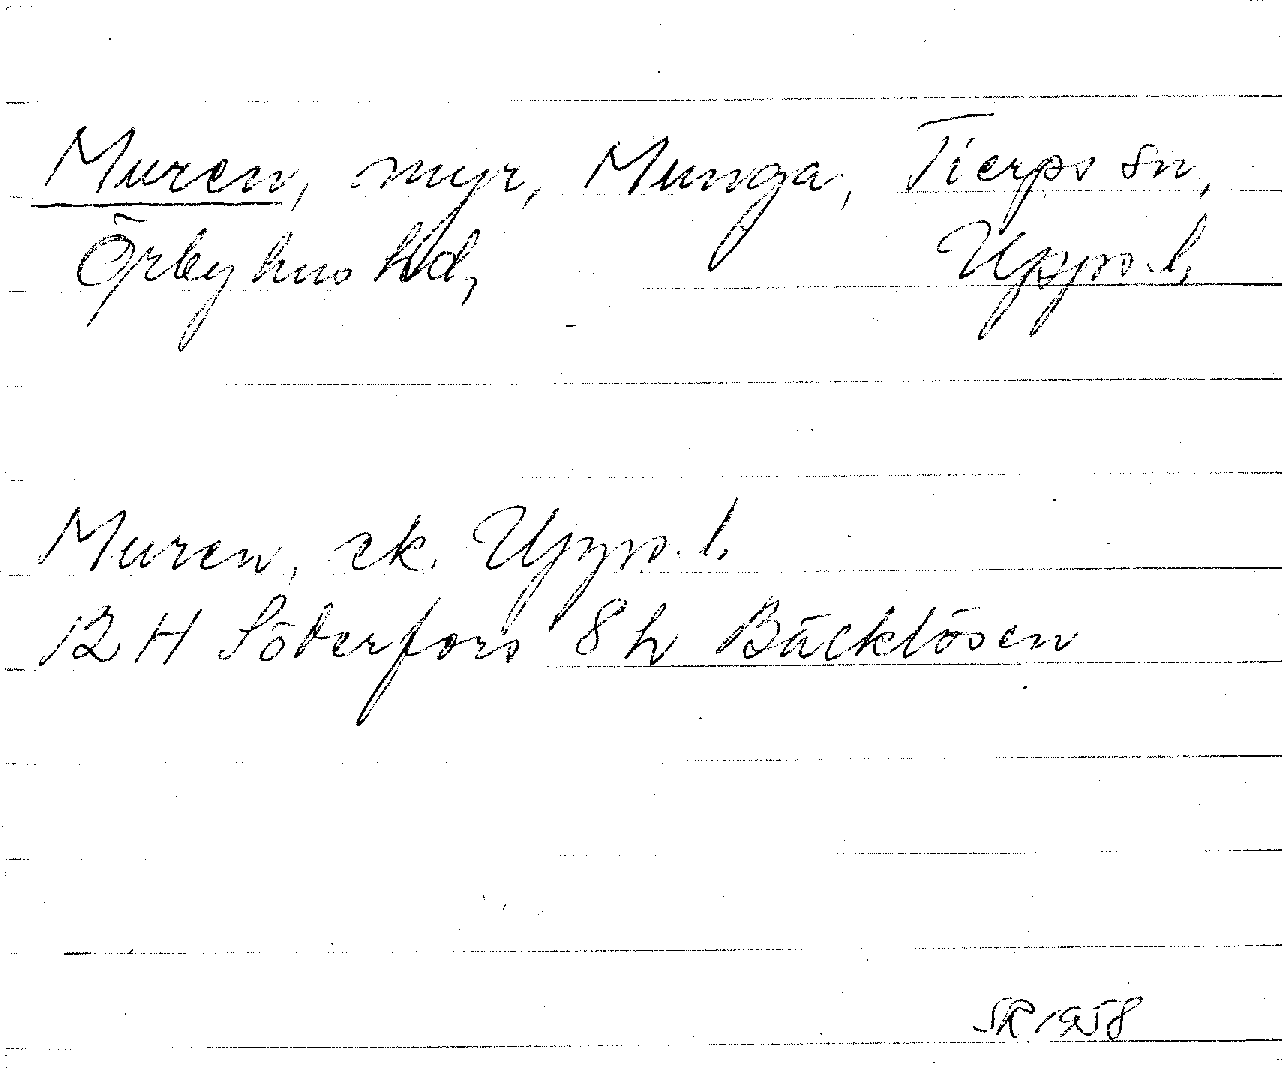 Muren, myr, Munga, Tierps sn,
Örbyhus hd, Upps. l.
Muren, ek. Upps. l.
12 H Söderfors 8 h Bäcklösen
SR 1958